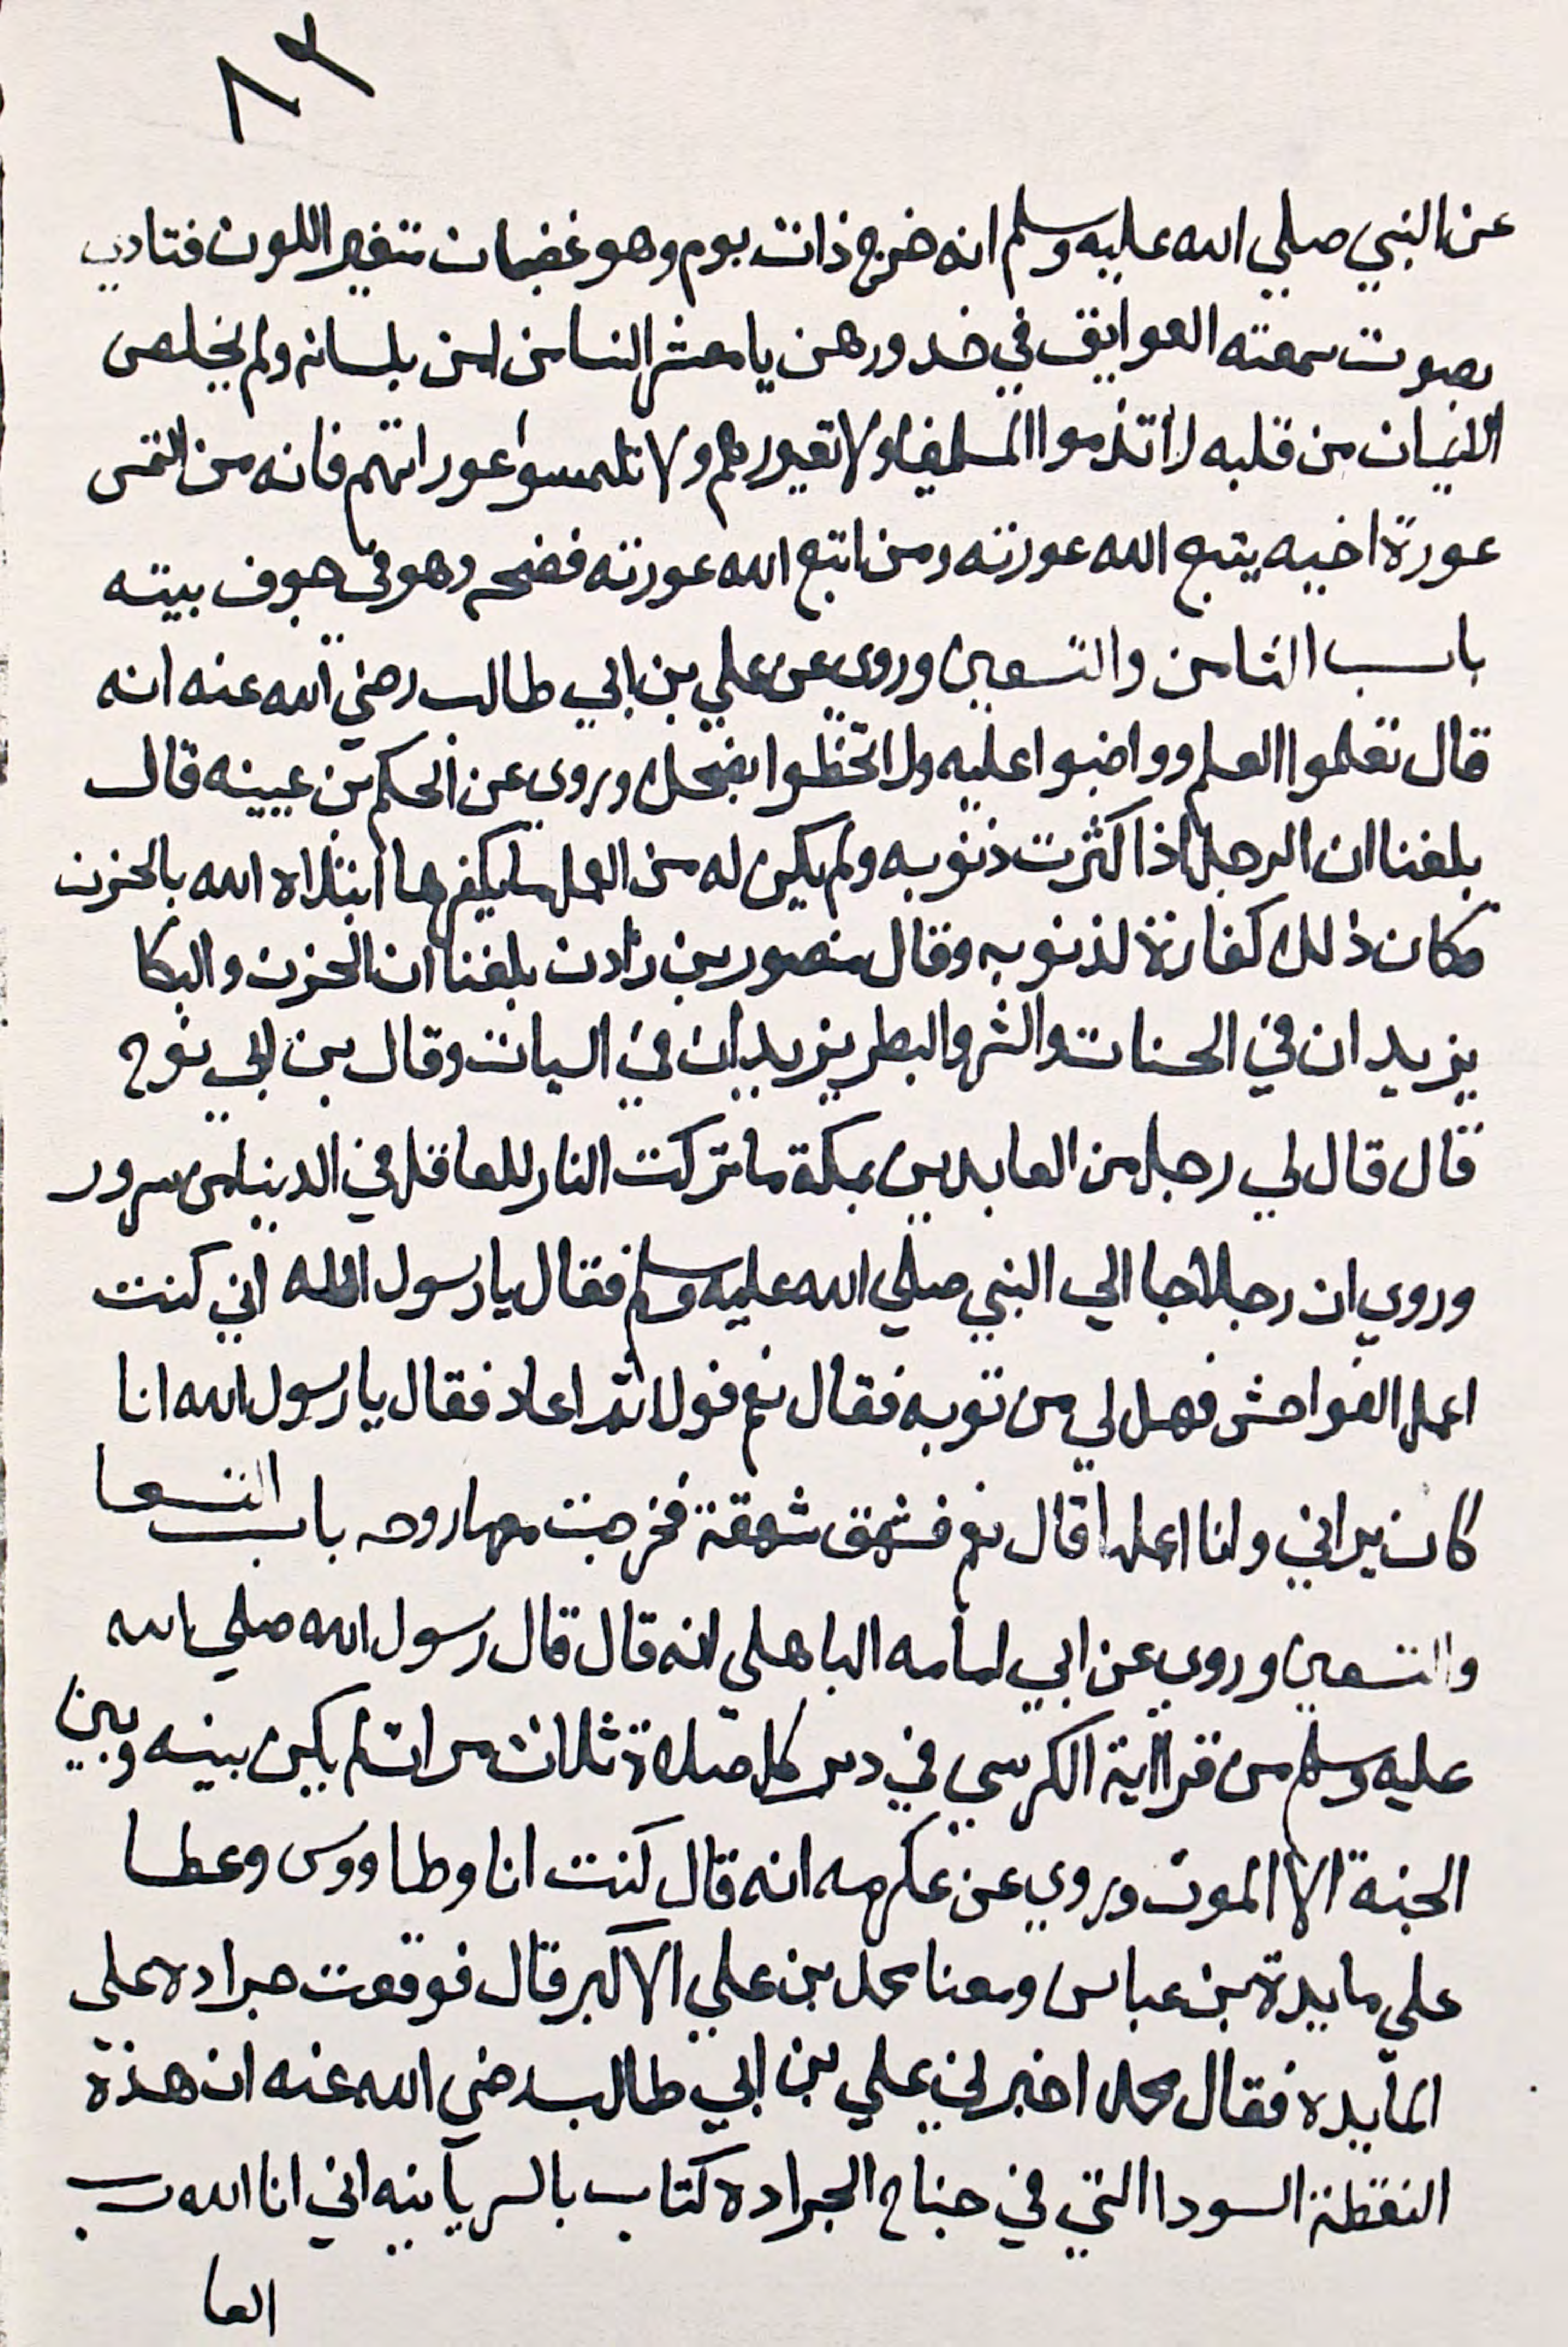 ٨٣
عن النبي صلي الله عليه وسلم انه خرج ذات يوم وهو غضبان متغير اللون فنادي
بصوت سمعته العوايق في خدورهن يا معشر الناس من امن بلسانه ولم يخلص
الايمان من قلبه لا تذموا المسلمين ولا تعيروهم ولا تلتمسوا عوراتهم فانه من التمس
عورة اخيه يتبع الله عورته ومن اتبع الله عورته فضحه وهو في جوف بيته
باب الثامن والتسعين وروي عن علي بن ابي طالب رضي الله عنه انه
قال تعلموا العلم وواضبوا عليه ولا تخلطوا بضحك وروي عن الحكم بن عيينه قال
بلغنا ان الرجل اذا كثرت ذنوبه ولم يكن له من العمل ما يكفرها ابتلاه الله بالحزن
فكان ذلك كفارة لذنوبه وقال منصور بن زادن بلغنا ان الحزن والبكا
يزيدان في الحسنات والشر والبطر يزيدان في السيات وقال بن ابي نوح
قال قال لي رجل من العابدين بمكة ما تركت النار للعاقل في الدنيا من سرور
وروي ان رجلا جا الي النبي صلي الله عليه وسلم فقال يا رسول الله اني كنت
اعمل الفواحش فهل لي من توبه فقال نعم فولا ثم اعاد فقال يا رسول الله انا
كان يراني وانا اعملها قال نعم فشهق شهقة فخرجت معها روحه باب التسعا
والتسعين وروي عن ابي امامه الباهلي انه قال قال رسول الله صلي الله
عليه وسلم من قرا اية الكرسي في دبر كل صلاة ثلاث مرات لم يكن بينه وبين
الجنة الا الموت وروي عن عكرمه انه قال كنت انا وطاووس وعطا
علي مايدة بن عباس ومعنا محمد بن علي الاكبر قال فوقعت جراده علي
المايده فقال محمد اخبرني علي بن ابي طالب رضي الله عنه ان هذة
النقطة السودا التي في جناح الجراده كتاب بالسريانيه اني انا الله رب
العا